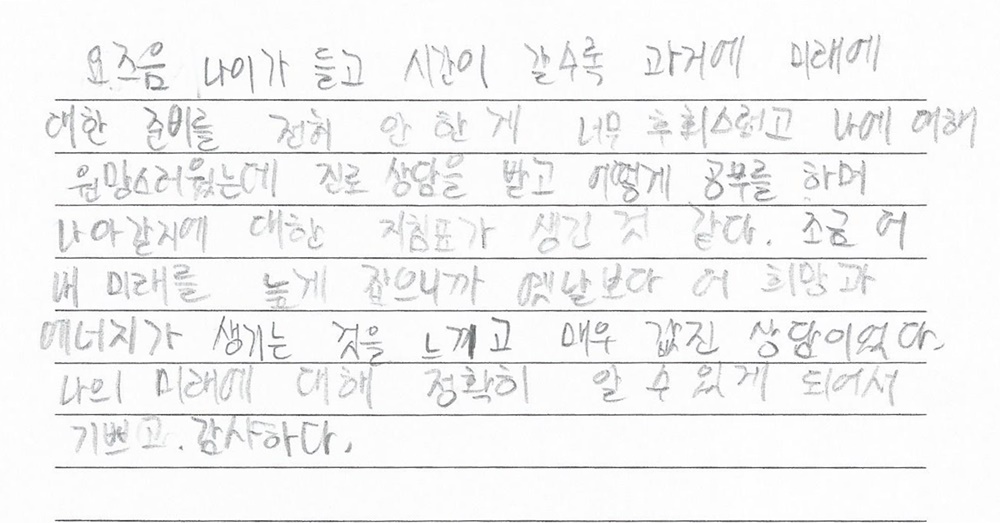 요즈음 나이가 들고 시간이 갈수록 과거에 미래에
대한 준비를 전혀 안 한 게 너무 후회스럽고 나에 대해
원망스러웠는데 진로 상담을 받고 어떻게 공부를 하며
나아갈지에 대한 지침표가 생긴 것 같다. 조금 더
내 미래를 높게 잡으니까 옛날보다 더 희망과
에너지가 생기는 것을 느끼고 매우 값진 상담이었다.
나의 미래에 대해 정확히 알 수 있게 되어서
기쁘고. 감사하다.